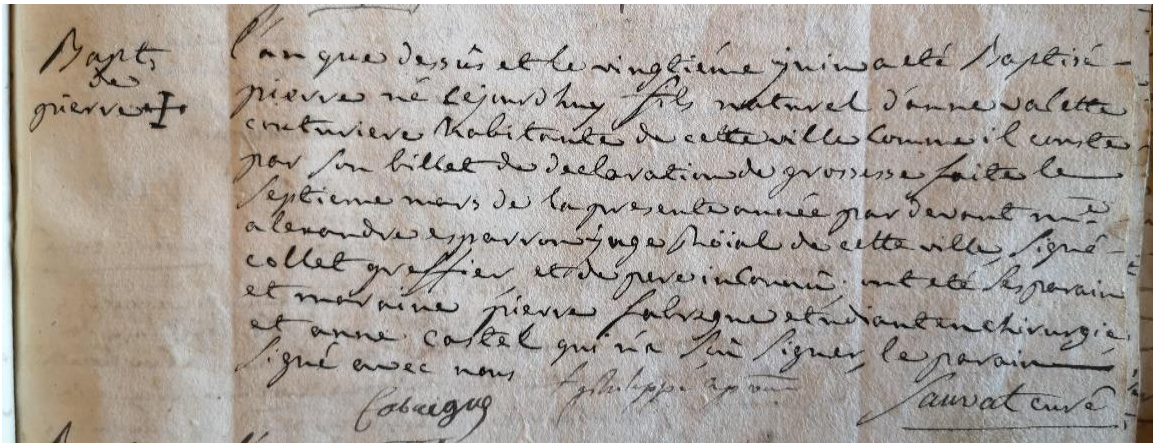 Bapt.
de
pierre +
l'an que dessûs et le vingtiéme juin a eté Baptisé
pierre né cejourdhuy fils naturel d'anne valette
couturiere habitante de cette ville comme il conste
par son billet de declaration de grossesse faite le
septieme mars de la presente année par devant me
alexandre esparron juge Roïal de cette ville, signé
collet greffier, et de pere inconnû. ont eté ses parain
et maraine pierre fabregue etudiant en chirurgie
et anne castel qui n'a sçû signer, le parain
signé avec nous
Sauvat curé